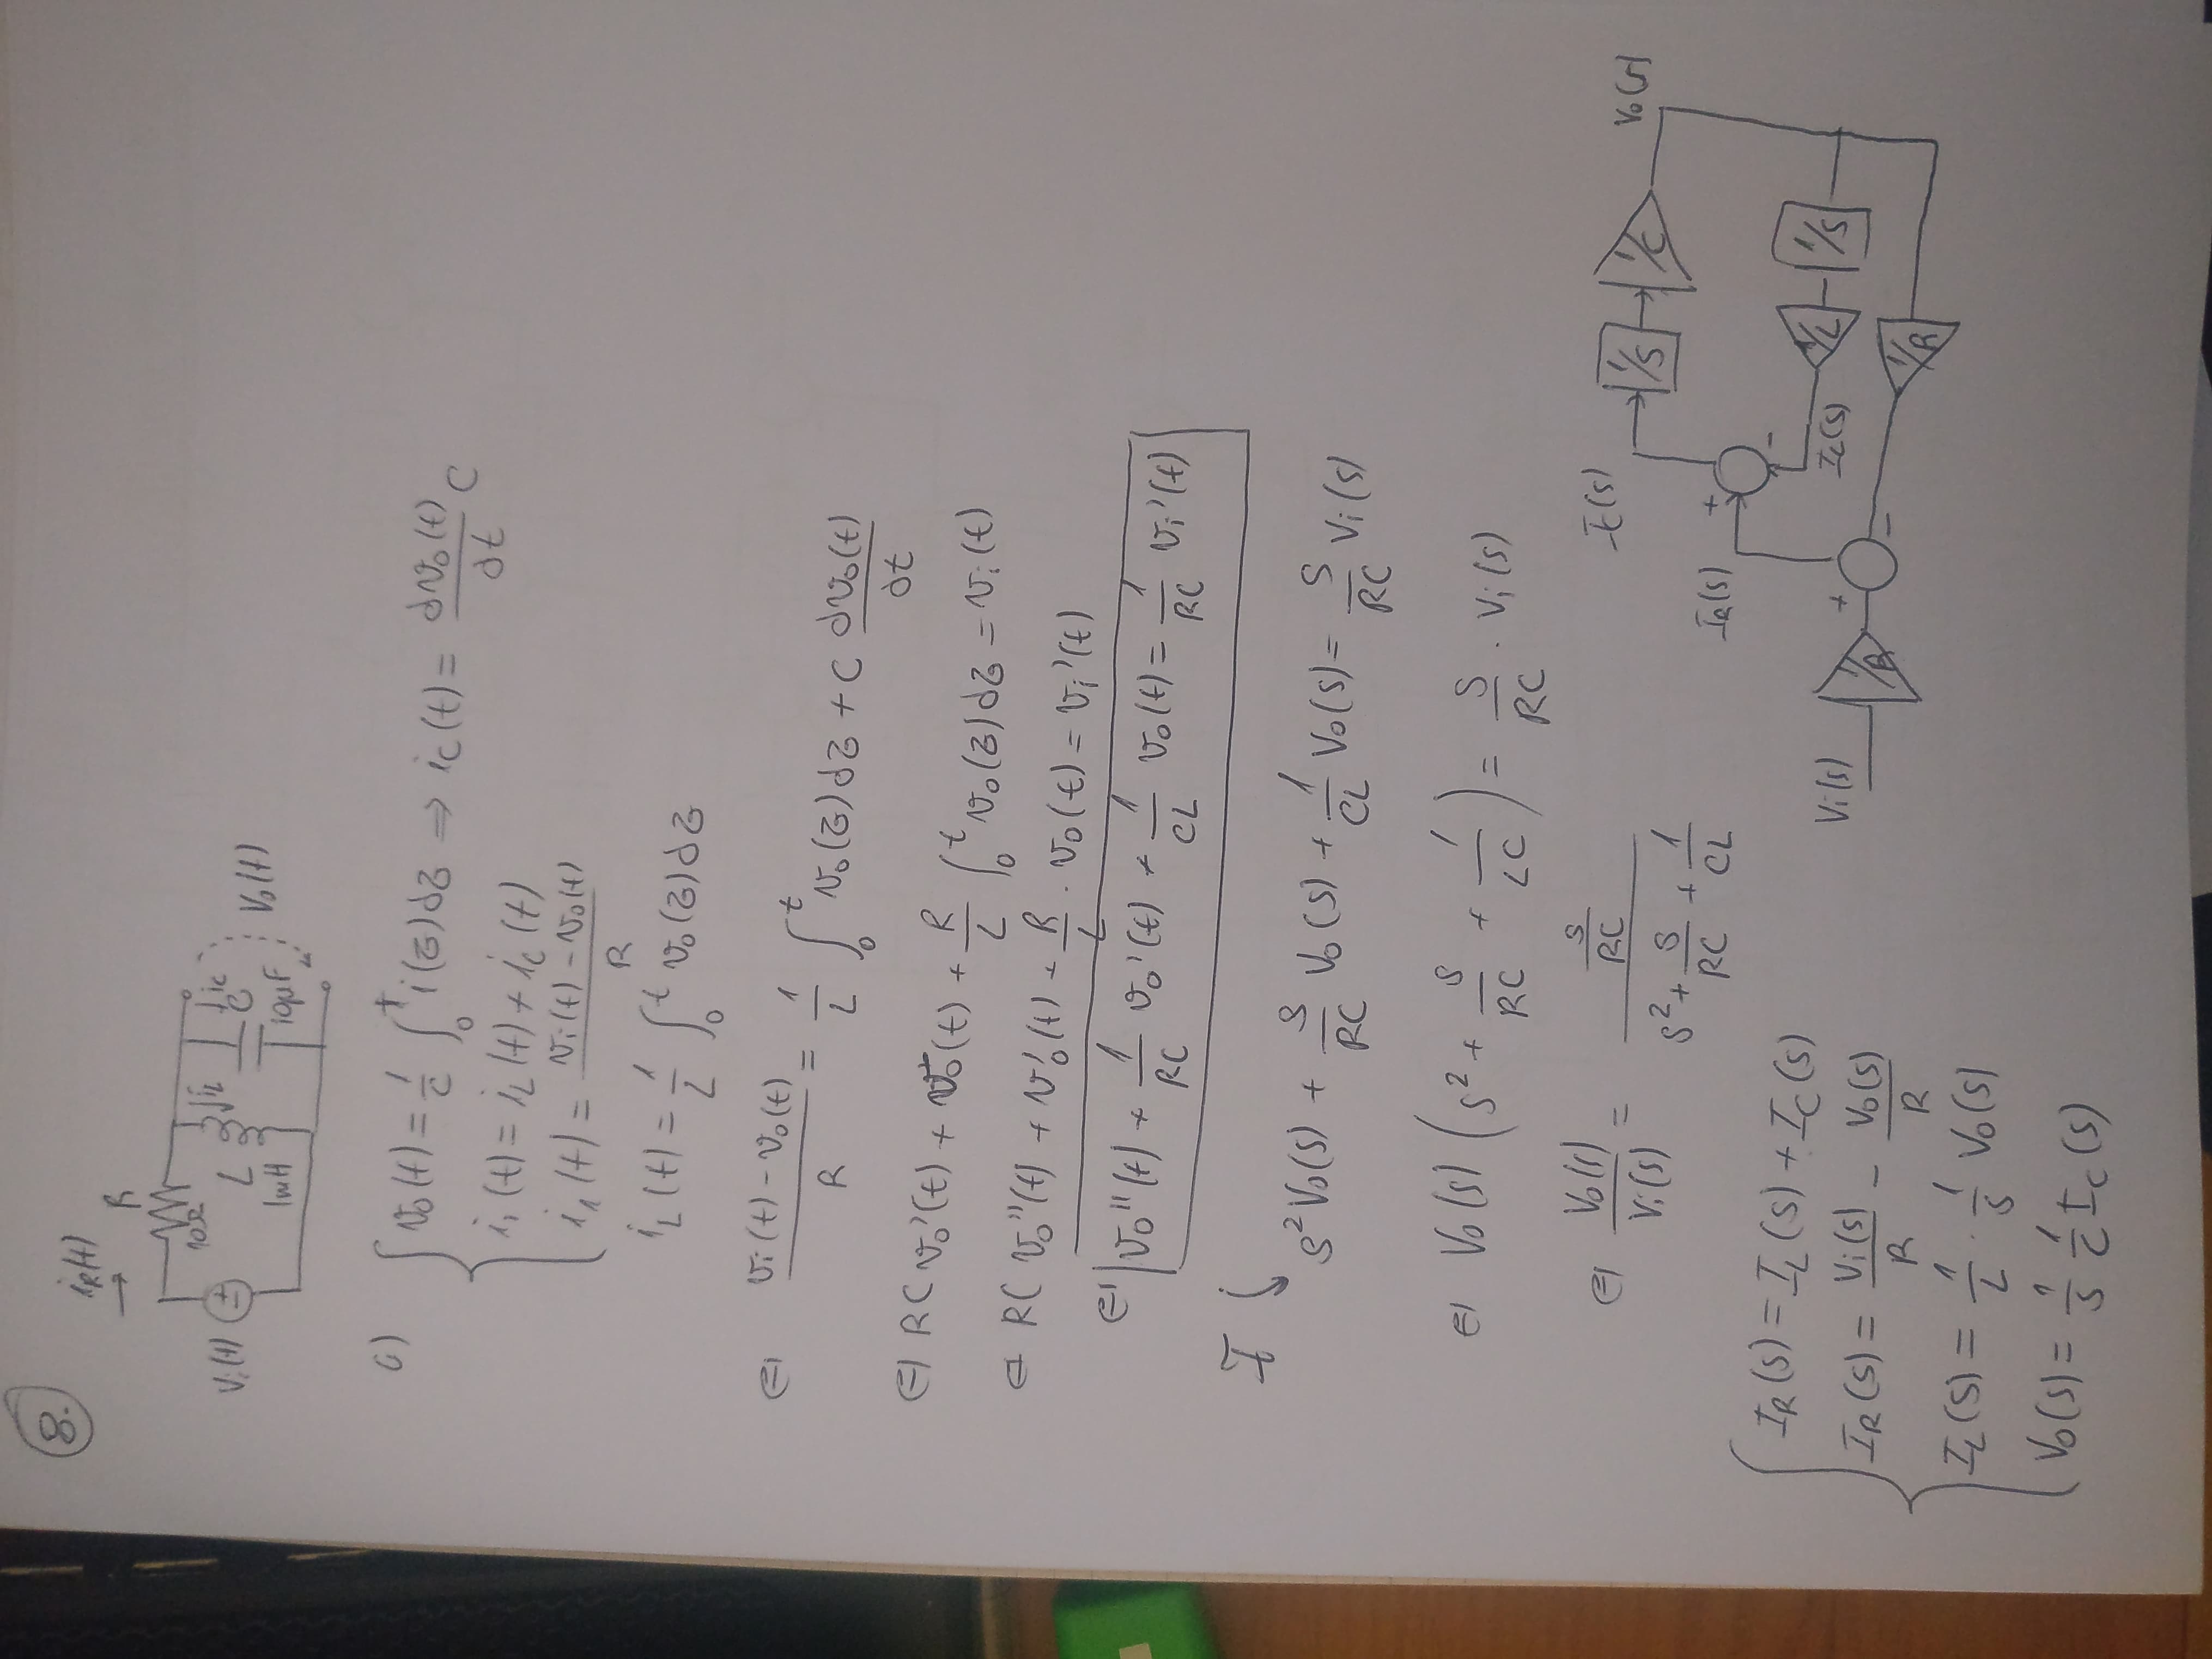 8.
iR(t)
→
R
10Ω
Vi(t)
±
L
1mH
↓iL
↓iC
C
10µF
Vo(t)
a)
vo(t) = 1/C ∫₀ᵗ i(τ)dτ ⇒ iC(t) = dvo(t)/dt C
i1(t) = iL(t) + iC(t)
i1(t) = (vi(t) - vo(t))/R
iL(t) = 1/L ∫₀ᵗ vo(τ)dτ
⇔ (vi(t) - vo(t))/R = 1/L ∫₀ᵗ vo(τ)dτ + C dvo(t)/dt
⇔ RC vo'(t) + vo(t) + R/L ∫₀ᵗ vo(τ)dτ = vi(t)
⇔ RC vo''(t) + vo'(t) + R/L · vo(t) = vi'(t)
⇔ vo''(t) + 1/RC vo'(t) + 1/CL vo(t) = 1/RC vi'(t)
↓
s² Vo(s) + s/RC Vo(s) + 1/CL Vo(s) = s/RC Vi(s)
⇔ Vo(s) (s² + s/RC + 1/LC) = s/RC · Vi(s)
⇔ Vo(s)/Vi(s) = (s/RC)/(s² + s/RC + 1/CL)
IR(s) = IL(s) + IC(s)
IR(s) = Vi(s)/R - Vo(s)/R
IL(s) = 1/L · 1/s Vo(s)
Vo(s) = 1/s 1/C IC(s)
IC(s)
1/s
1/C
Vo(s)
IR(s)
+
-
IL(s)
1/L
1/s
Vi(s)
1/R
+
-
1/R